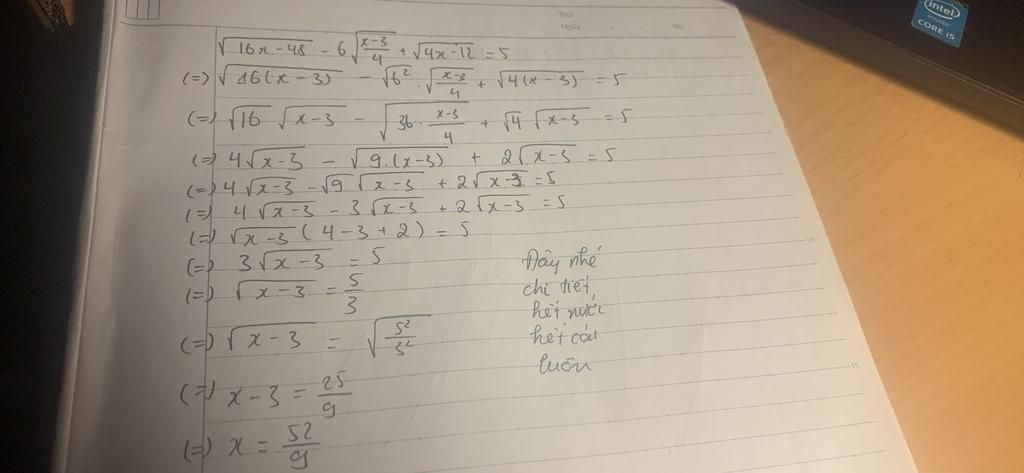 Thứ
Ngày No.
intel
inside
CORE i5
√(16x-48) - 6√((x-3)/4) + √(4x-12) = 5
(=) √(16(x-3)) - √(6²) · √((x-3)/4) + √(4(x-3)) = 5
(=) √16 √(x-3) - √(36 · (x-3)/4) + √4 √(x-3) = 5
(=) 4√(x-3) - √(9.(x-3)) + 2√(x-3) = 5
(=) 4√(x-3) - √9 √(x-3) + 2√(x-3) = 5
(=) 4√(x-3) - 3√(x-3) + 2√(x-3) = 5
(=) √(x-3) (4-3+2) = 5
(=) 3√(x-3) = 5
(=) √(x-3) = 5/3
(=) √(x-3) = √(5²/3²)
(=) x-3 = 25/9
(=) x = 52/9
Đây nhé
chi tiết
hết nước
hết cái
luôn